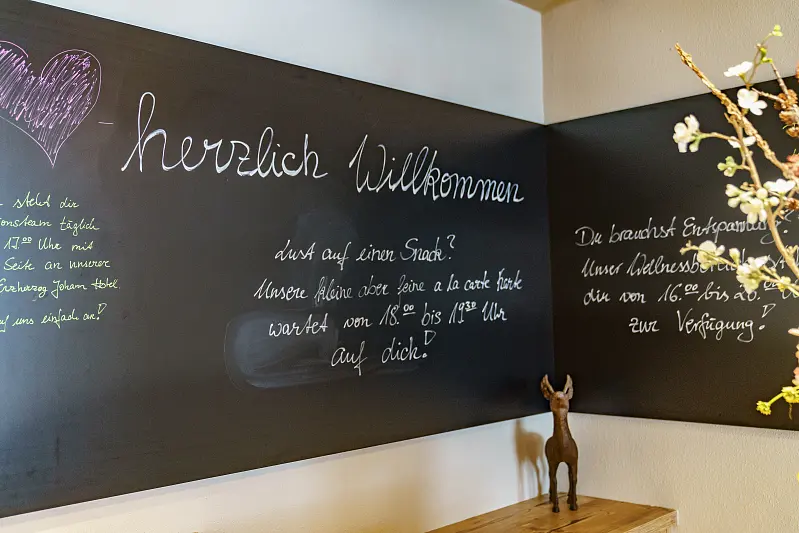 herzlich Willkommen
steht dir
onsteam täglich
17⁰⁰ Uhr mit
Seite an unserer
Erzherzog Johann Hotel
uf uns einfach an!
Lust auf einen Snack?
Unsere kleine aber feine a la carte Karte
wartet von 18.⁰⁰ bis 19³⁰ Uhr
auf dich!
Du brauchst Entspannung?
Unser Wellnessbereich
dir von 16.⁰⁰ bis
zur Verfügung!